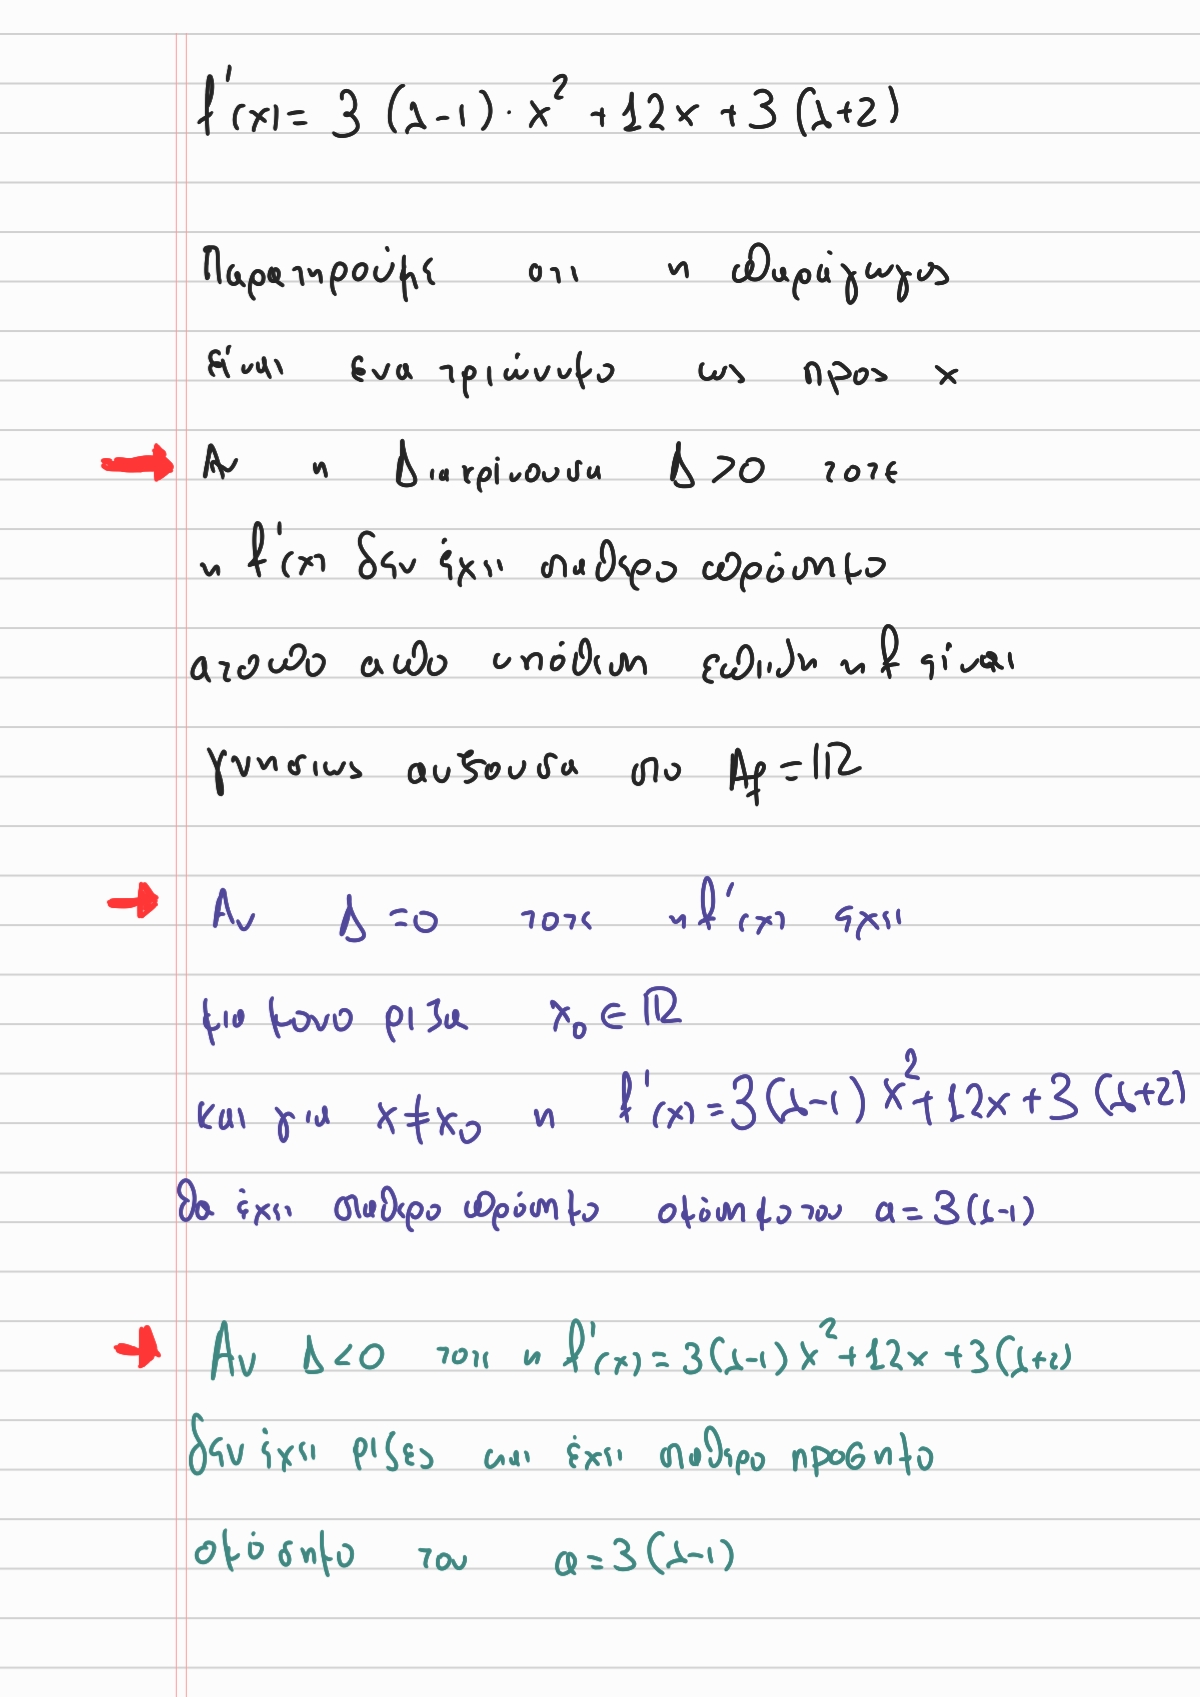 f'(x) = 3 (λ-1) · x² + 12x + 3 (λ+2)
Παρατηρούμε οτι η παράγωγος
είναι ενα τριώνυμο ως προς x
Αν η Διακρίνουσα Δ > 0 τοτε
η f'(x) δεν έχει σταθερο πρόσημο
ατοπο απο υπόθεση επειδη η f είναι
γνησιως αυξουσα στο Af = ℝ
Αν Δ = 0 τοτε η f'(x) εχει
μια μονο ριζα x₀ ∈ ℝ
και για x ≠ x₀ η f'(x) = 3(λ-1) x² + 12x + 3 (λ+2)
θα έχει σταθερο πρόσημο ομόσημο του α = 3(λ-1)
Αν Δ < 0 τοτε η f'(x) = 3(λ-1) x² + 12x + 3(λ+2)
δεν έχει ριζες και έχει σταθερο προσημο
ομόσημο του α = 3(λ-1)